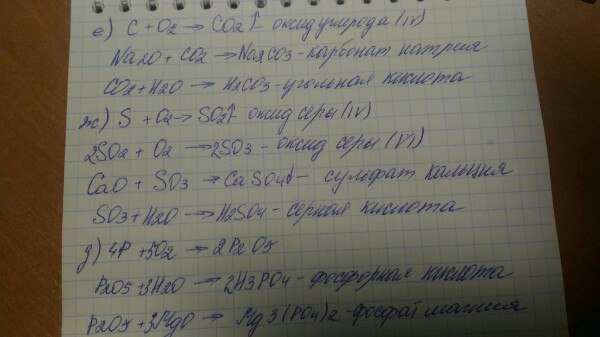 е) C + O2 → CO2↑ оксид углерода (IV)
Na2O + CO2 → Na2CO3 - карбонат натрия
CO2 + H2O → H2CO3 - угольная кислота
ж) S + O2 → SO2↑ оксид серы (IV)
2SO2 + O2 → 2SO3 - оксид серы (VI)
CaO + SO3 → CaSO4↓ - сульфат кальция
SO3 + H2O → H2SO4 - серная кислота
д) 4P + 5O2 → 2P2O5
P2O5 + 3H2O → 2H3PO4 - фосфорная кислота
P2O5 + 3MgO → Mg3(PO4)2 - фосфат магния